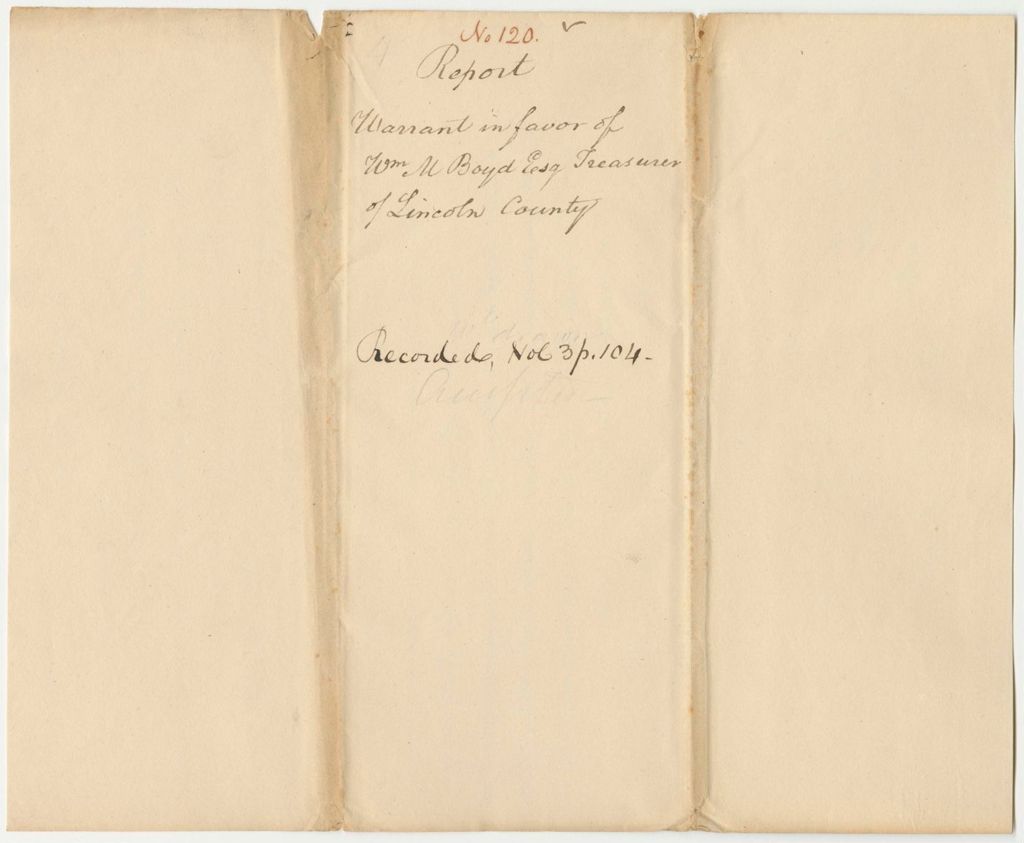 No 120.
Report
Warrant in favor of
Wm M Boyd Esq Treasurer
of Lincoln County
Recorded, Vol 3 p. 104-